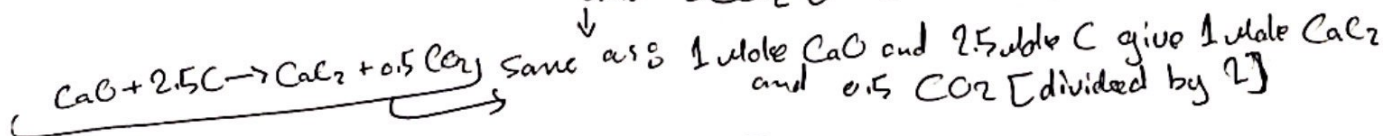 ↓
CaO + 2.5C → CaC2 + 0.5 CO2, Same as: 1 Mole CaO and 2.5 Mole C give 1 Mole CaC2
and 0.5 CO2 [divided by 2]